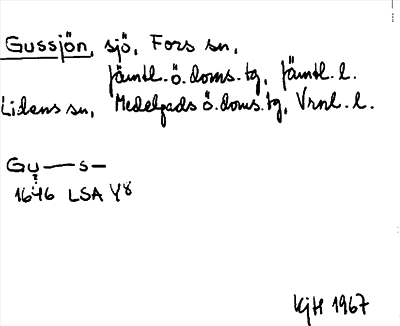 Gussjön, sjö, Fors sn,
Jämtl. ö. doms. tg, Jämtl. l.
Lidens sn, Medelpads ö. doms. tg, Vrnl. l.
Gu — s —
1646 LSA Y8
KjH 1967